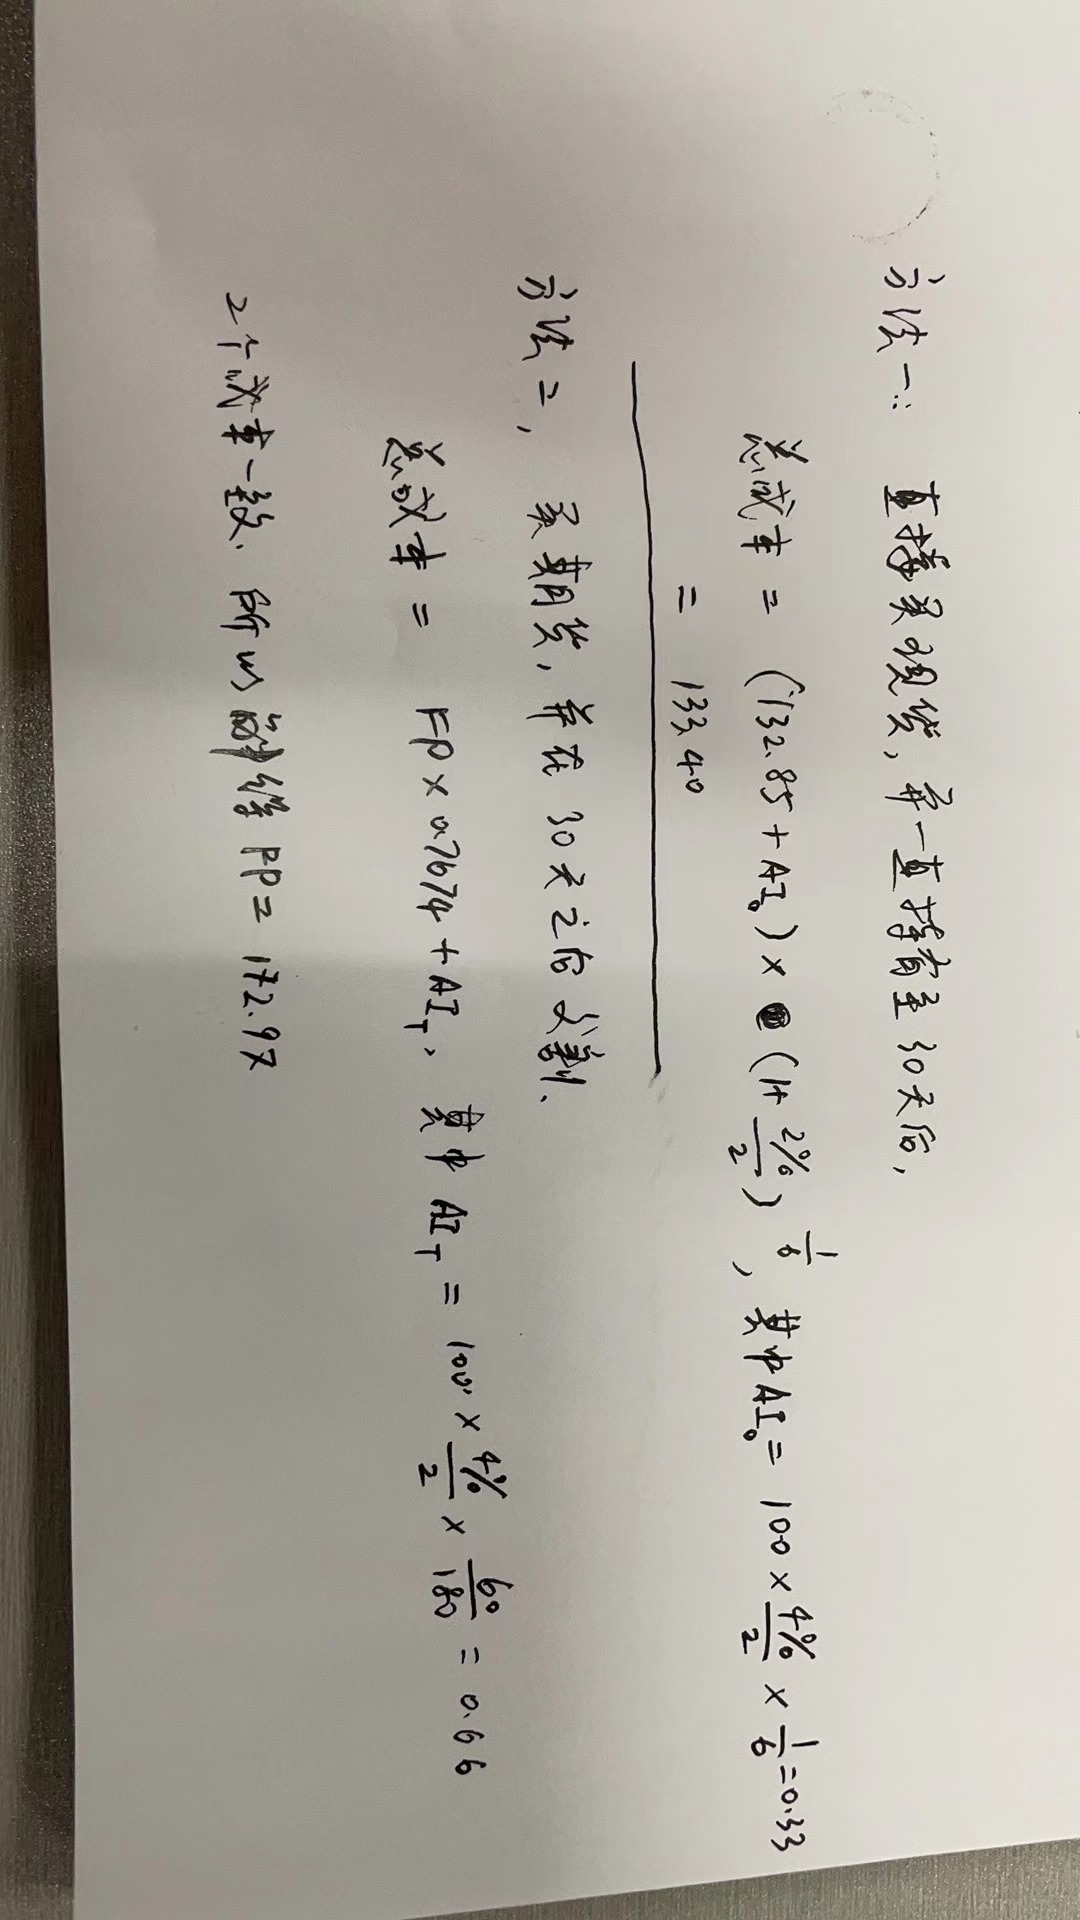 方法一: 直接买现货, 并一直持有至 30天后,
总成本 = (132.85 + AI₀) × (1+ 2%/2)^(1/6), 其中 AI₀ = 100 × 4%/2 × 1/6 = 0.33
= 133.40
方法二, 买期货, 并在 30天之后交割.
总成本 = FP × 0.7674 + AI_T, 其中 AI_T = 100 × 4%/2 × 60/180 = 0.66
2个成本一致. 所以 解得 FP = 172.97